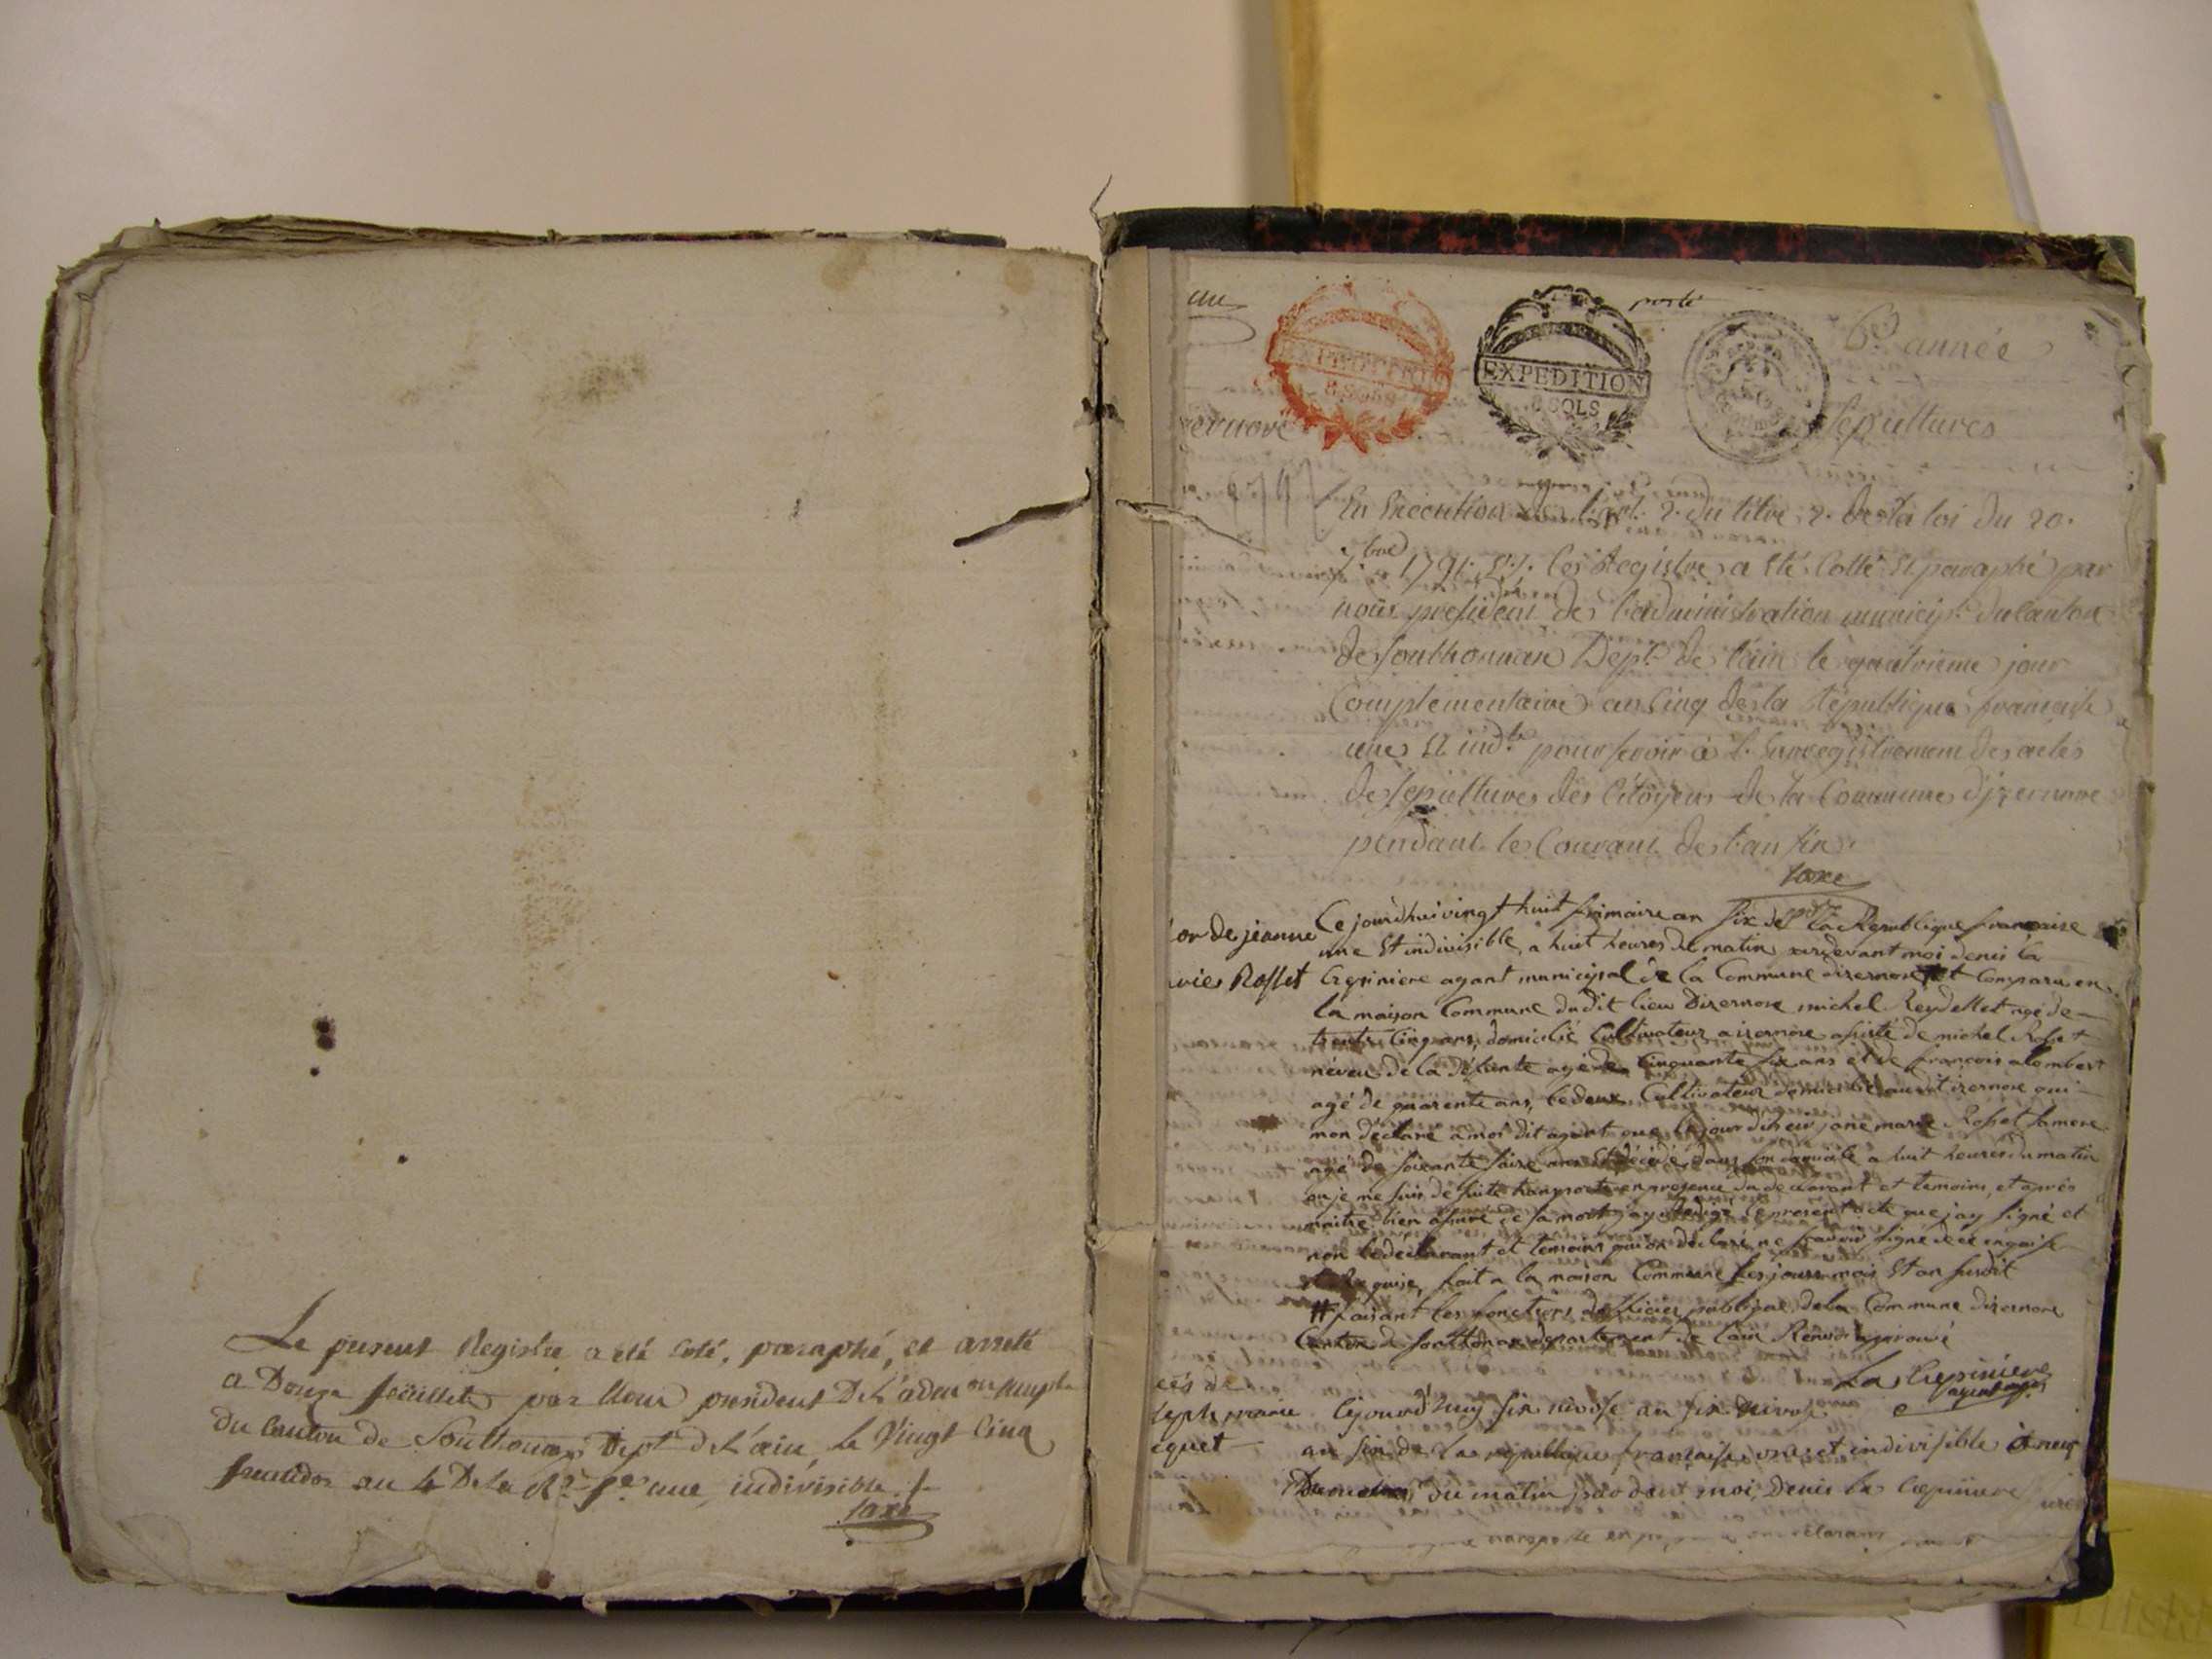 Le present Registre a eté coté, paraphé, et arreté
a Douze feüillets par Nous president De L'adm.on
du Canton de Sonthonax Dept. de L'ain, le Vingt Cinq
fructidor an 4 De la R.e f.se une, indivisible ./.
Taxe
un
EXPEDITION
8 SOLS
EXPEDITION
8 SOLS
6.e année
Sépultures
En Execution de l'art. 2. du titre 2. de la loi du 20.
7.bre 1791. Ce Registre a été Cotté et paraphé par
nous president de l'administration municip. du Canton
de Sonthonnax Dept. de l'ain le quatrieme jour
Complementaire an Cinq de la Republique francaise
une et ind.le pour servir à l'Enregistrement des actes
de sépultures des Citoyens de la Commune d'izernore
pendant le Courant de l'an six.
Taxe
or de jeanne
marie Rosset
Ce jourdhui vingt huit frimaire an six de la Republique francaise
une et indivisible, a huit heures du matin pardevant moi denis la
Crepiniere agant municipal de la Commune dizernore # est Comparu en
la maison Commune dudit lieu Dizernore michel Reydellet agé de
trente Cinq ans, domicilié Cultivateur a izernore asisté de michel Rosset
neveu de la défunte agé de Cinquante six ans et de françois alombert
agé de quarente ans, les deux Cultivateur domicilié audit izernore qui
mon déclaré a moi dit agent que le jour dheui jane marie Rosset sa mere
agé de soixante saise ans Est décédé dans son domicile a huit heures du matin
ou je me suis de suite transporté en presence du declarant et temoins, et après
maitre bien assuré de sa mort jay redigé le present acte que jay signé et
non le declarant et temoins qui on déclaré ne savoir signé de ce enquis
et Requise, fait a la maison Commune les jour mois et an susdit
# faisant les fonctions d'officier publique de la Commune dizernore
Canton de Sontonax departement de lain Renvoi approuvé
La Crepiniere
agent
cés de
seph marie
quet
Cejourd'huy six nivose an six nivose
an six de la republique francaise une et indivisible à neuf
du matin par devant moi, Denis la Crepiniere